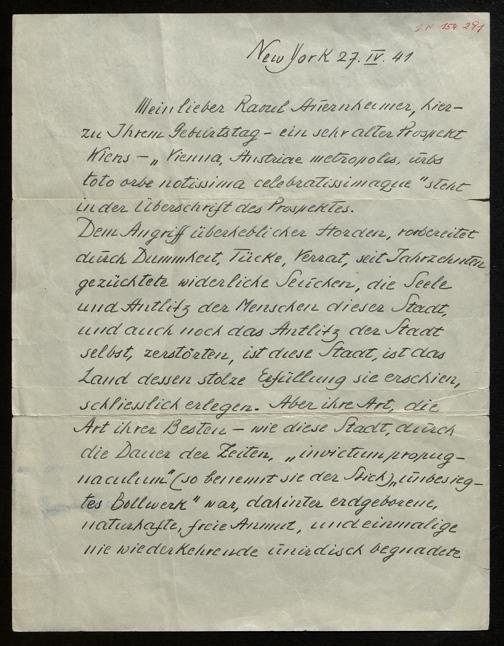 I.N. 154.291
New York 27. IV. 41
Mein lieber Raoul Auernheimer, hier-
zu Ihrem Geburtstag - ein sehr alter Prospekt
Wiens - „Vienna, Austriae metropolis, urbs
toto orbe notissima celebratissimaque" steht
in der Überschrift des Prospektes.
Dem Angriff überheblicher Horden, vorbereitet
durch Dummheit, Tücke, Verrat, seit Jahrzehnten
gezüchtete widerliche Seuchen, die Seele
und Antlitz der Menschen dieser Stadt,
und auch noch das Antlitz der Stadt
selbst, zerstörten, ist diese Stadt, ist das
Land dessen stolze Erfüllung sie erschien,
schliesslich erlegen. Aber ihre Art, die
Art ihrer Besten - wie diese Stadt, durch
die Dauer der Zeiten, „invictum propug-
naculum" (so benennt sie der Stich) „unbesieg-
tes Bollwerk" war, dahinter erdgeborene,
naturhafte, freie Anmut, und einmalige
nie wiederkehrende unirdisch begnadete